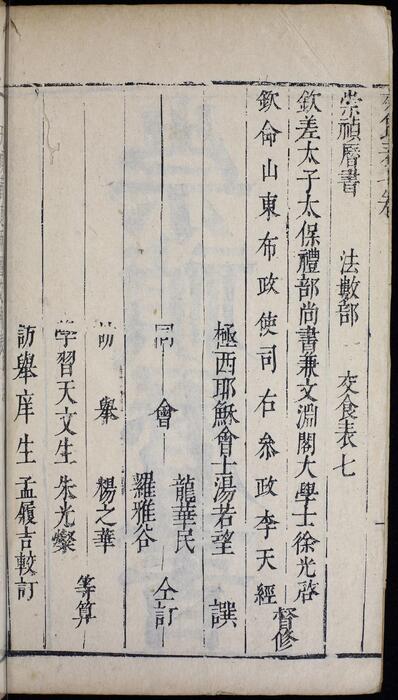 交食表七卷
崇禎曆書 法數部 交食表七
欽差太子太保禮部尚書兼文淵閣大學士徐光啓
欽命山東布政使司右參政李天經
督修
極西耶穌會士湯若望 譔
同會
龍華民
羅雅谷
仝訂
訪舉 楊之華
學習天文生 朱光燦
等算
訪舉庠生孟履吉較訂